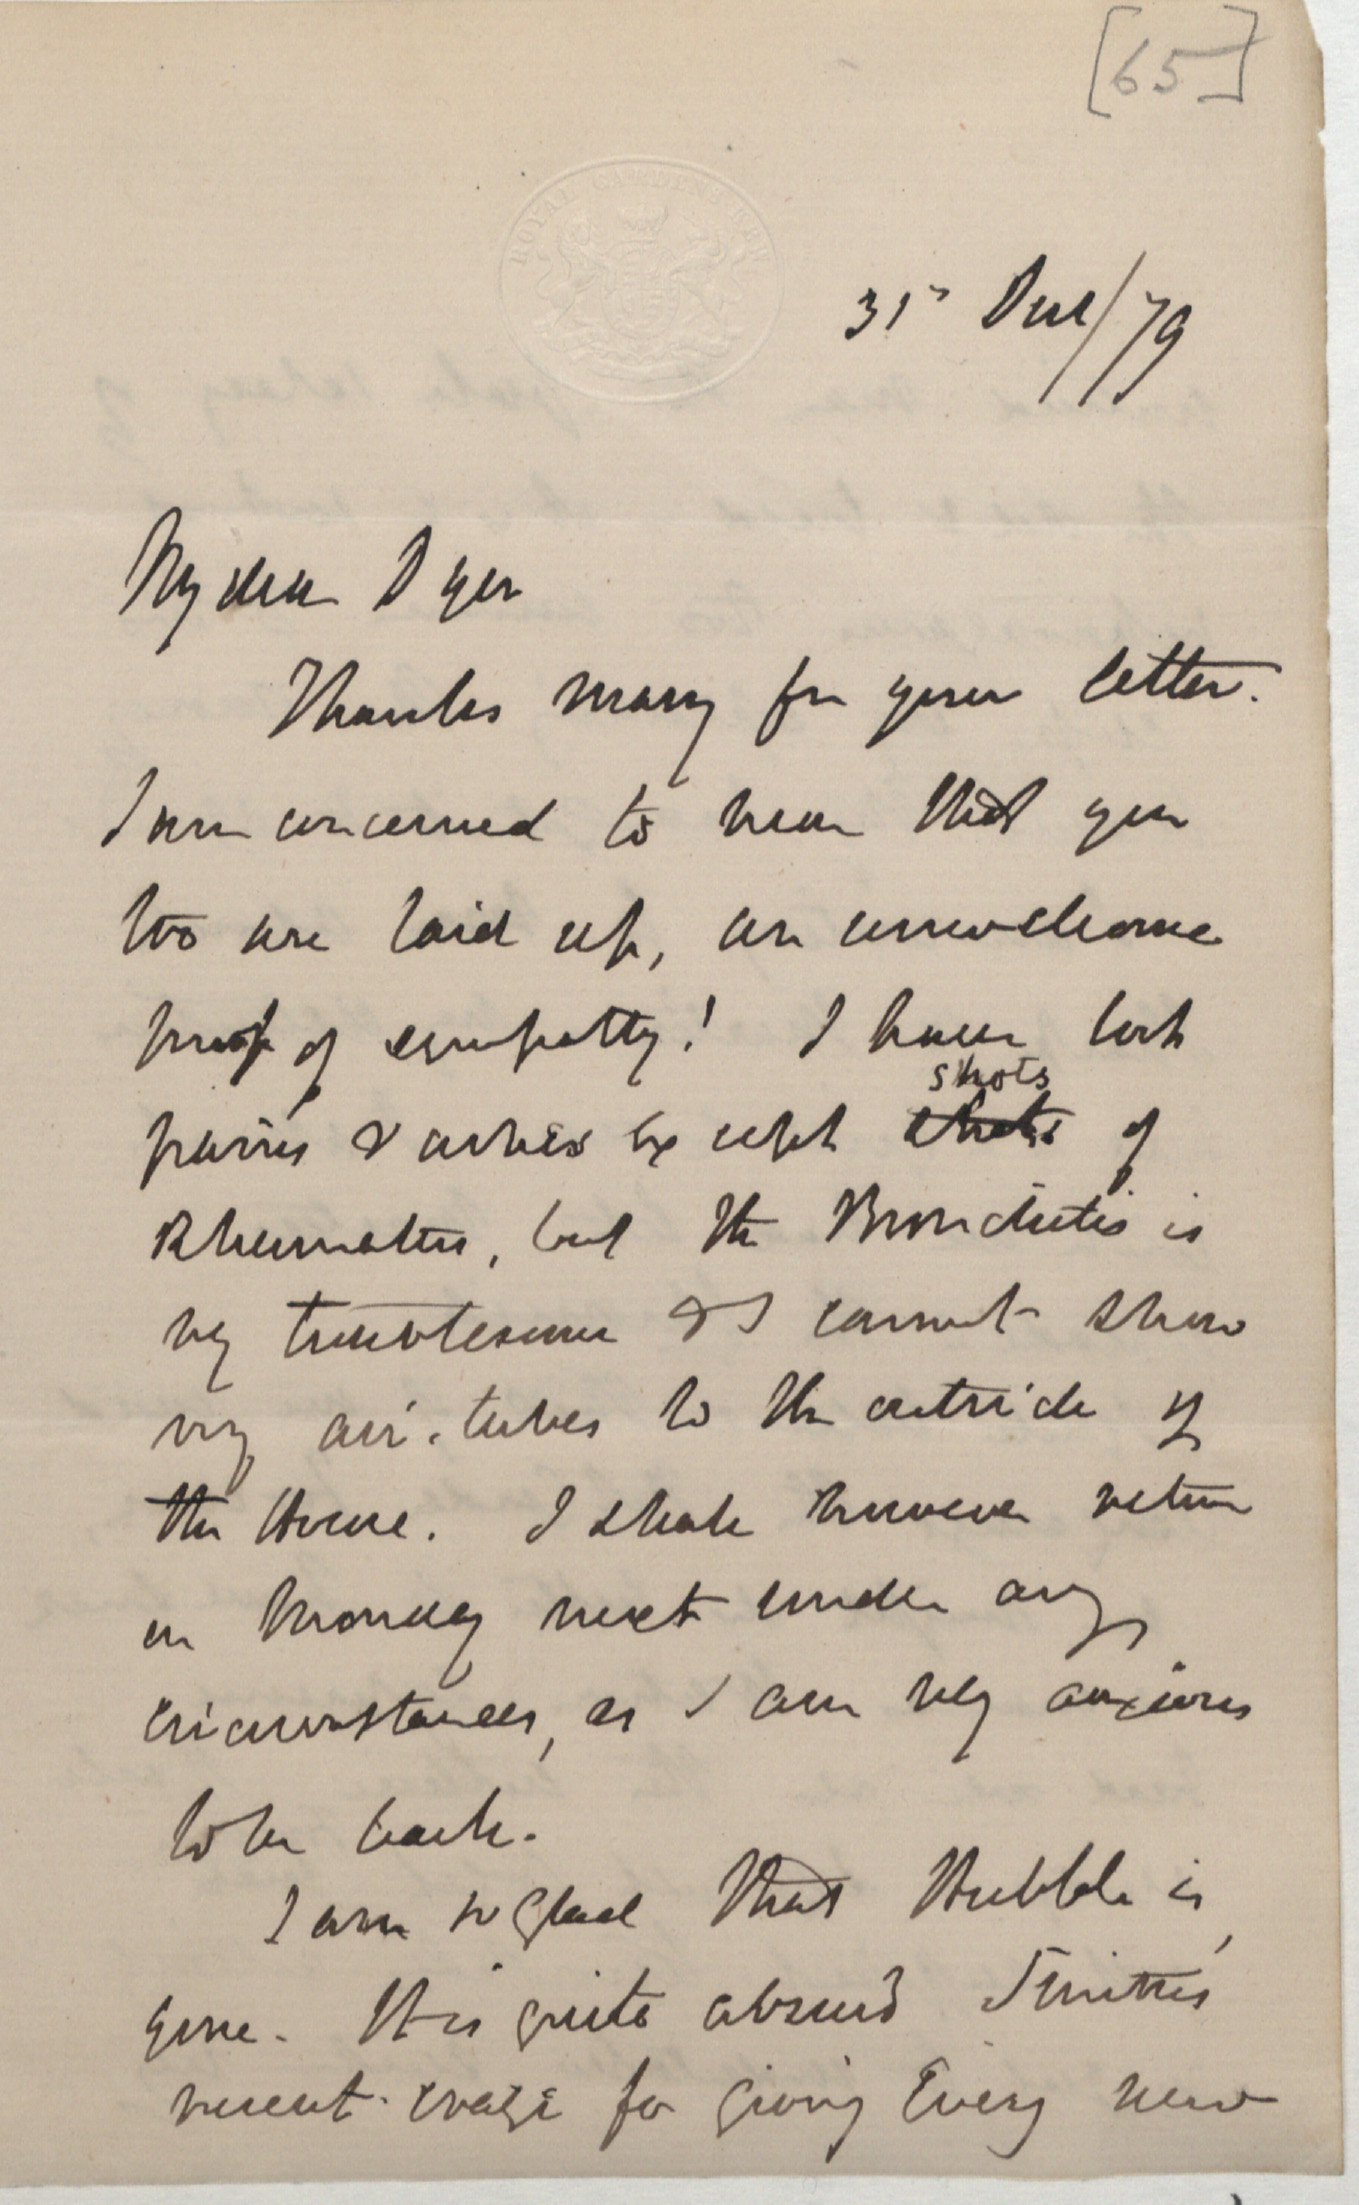 [65]
ROYAL GARDENS KEW
31st Decr/79
My dear Dyer
Thanks many for your letter.
I am concerned to hear that you
too are laid up, an unwelcome
proof of sympathy! I have lost
shots
pains & aches except shots of
Rheumatism, but the Bronchitis is
very troublesome & I cannot show
my air-tubes to the outside of
the House. I shall however return
on Monday next under any
circumstances, as I am very anxious
to be back.
I am so glad that Hubble is
gone. It is quite absurd Smith's
recent craze for giving every new